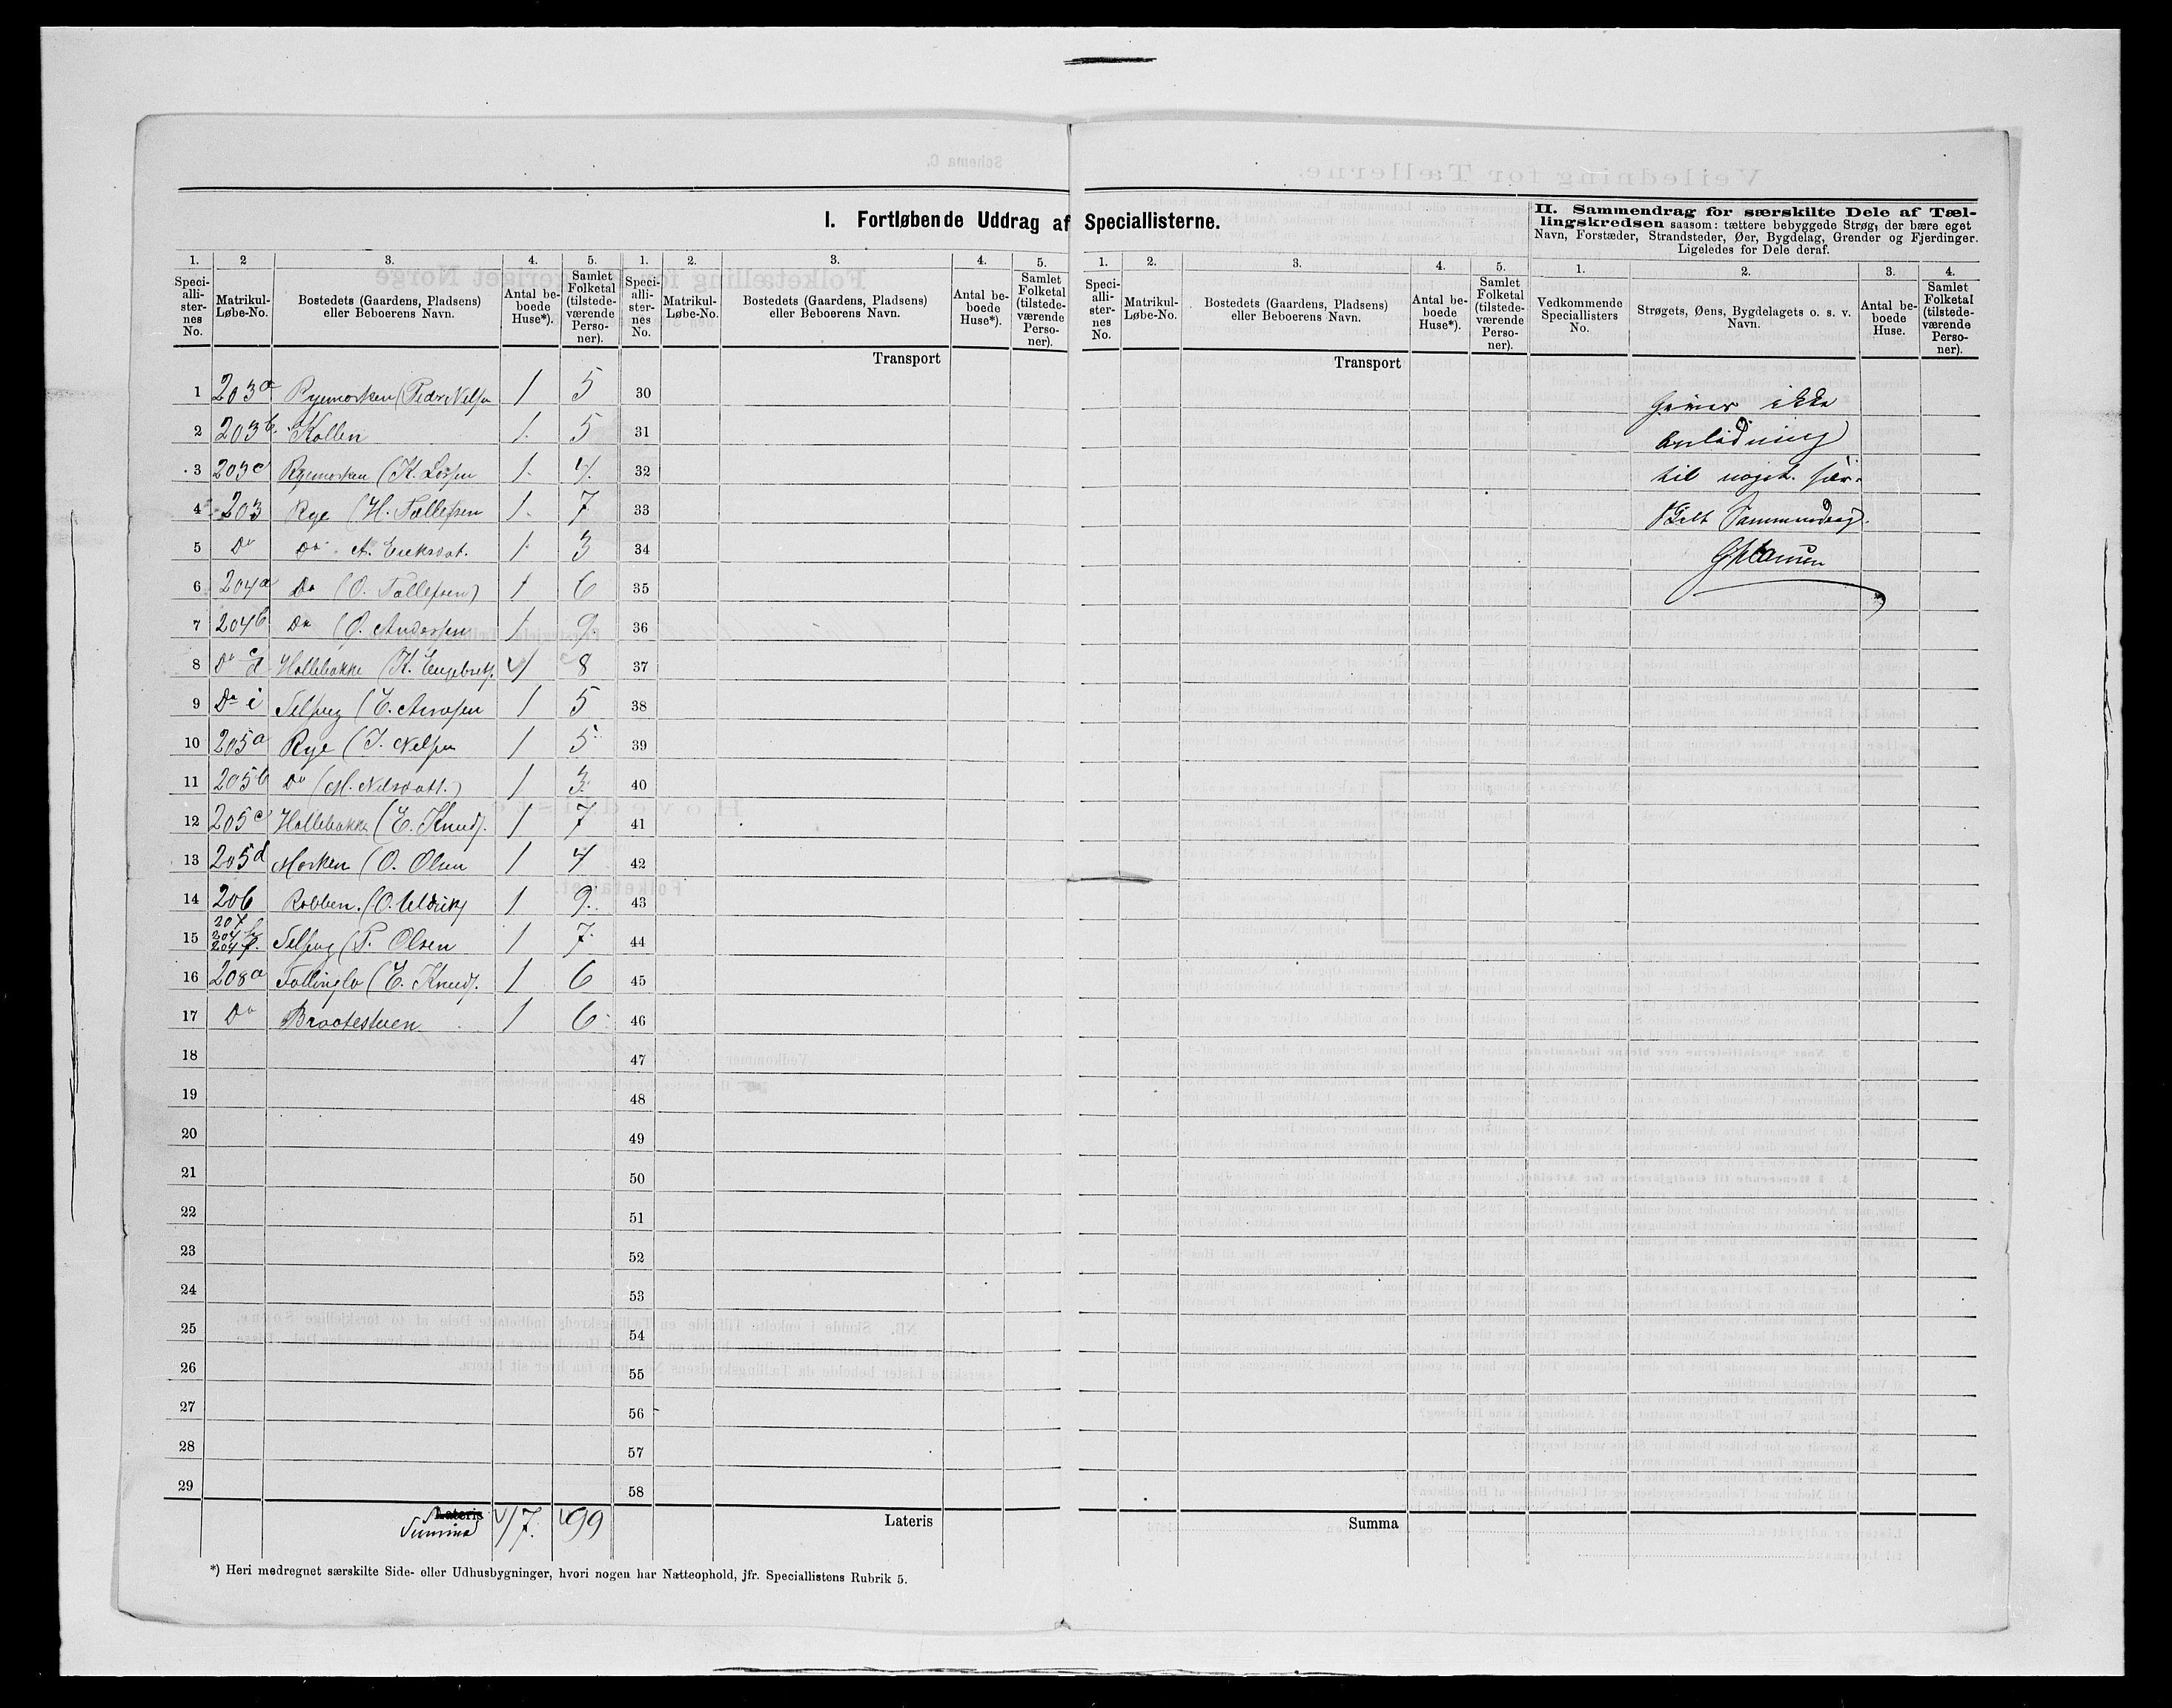 I. Fortløbende Uddrag af Speciallisterne.
II. Sammendrag for særskilte Dele af Tæl-
lingskredsen saasom: tættere bebyggede Strøg, der bære eget
Navn, Forstæder, Strandsteder, Øer, Bygdelag, Grender og Fjerdinger.
Ligeledes for Dele deraf.
1. 2 3. 4. 5. 1. 2. 3. 4. 5. 1. 2. 3. 4. 5. 1. 2. 3. 4.
Speci-alli-ster-nes No. Matrikul-Løbe-No. Bostedets (Gaardens, Pladsens) eller Beboerens Navn. Antal be-boede Huse*). Samlet Folketal (tilstede-værende Perso-ner).
Speci-alli-ster-nes No. Matrikul-Løbe-No. Bostedets (Gaardens, Pladsens) eller Beboerens Navn. Antal be-boede Huse*). Samlet Folketal (tilstede-værende Perso-ner).
Speci-alli-ster-nes No. Matrikul-Løbe-No. Bostedets (Gaardens, Pladsens) eller Beboerens Navn. Antal be-boede Huse*). Samlet Folketal (tilstede-værende Perso-ner).
Vedkommende Speciallisters No. Strøgets, Øens, Bygdelagets o. s. v. Navn. Antal be-boede Huse. Samlet Folketal (tilstede-værende Perso-ner).
Transport Transport
1 203a Ryemorken (Peder Nelsen 1 5 30
2 203b. Kollen 1. 5 31
3 203c Ryemorken (K. 1. 4. 32
4 203 Rye (H. Tollefsen 1. 7 33
5 Do Do A. Eriksdat. 1. 3 34
6 204a Do (O. Tollefsen) 1 6 35
7 204b Do (O. Anderssen 1 9 36
8 Do c d Hallebakke (K. Engebrets. 1 8 37
9 Do i (E. 1 5 38
10 205a Rye (J. Nelsen 1 5 39
11 205b Do (M. Nilsdatt.) 1 3. 40
12 205c Hallebakke (E. Knuds. 1 7 41
13 205d Morken (O. Olsen 1 4 42
14 206 Robben. (O. 1 9. 43
15 207 204 204 f. (P. Olsen 1 7. 44
16 208a (E. Knuds. 1 6 45
17 Do Braatestuen 1 6 46
18 47
19 48
20 49
21 50
22 51
23 52
24 53
25 54
26 55
27 56
28 57
29 58
Lateris Summa 17. 99 Lateris Summa
Giver ikke
Anledning
til noget sær-
skilt Sammendrag.
*) Heri medregnet særskilte Side- eller Udhusbygninger, hvori nogen har Natteophold, jfr. Speciallistens Rubrik 5.